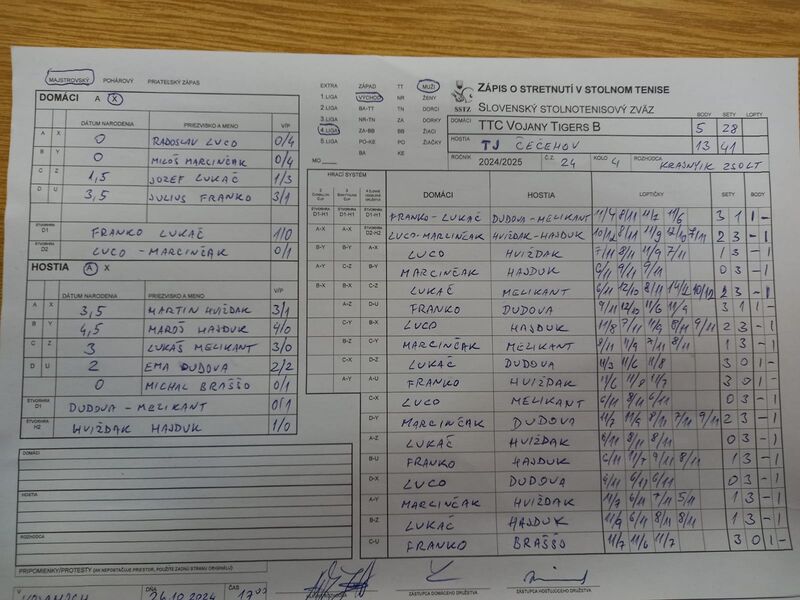 MAJSTROVSKÝ POHÁROVÝ PRIATEĽSKÝ ZÁPAS
DOMÁCI A X
DÁTUM NARODENIA PRIEZVISKO A MENO V/P
A X 0 RADOSLAV LUCO 0/4
B Y 0 MILOŠ MARCINČAK 0/4
C Z 1,5 JOZEF LUKÁČ 1/3
D U 3,5 JULIUS FRANKO 3/1
ŠTVORHRA D1 FRANKO LUKÁČ 1/0
ŠTVORHRA D2 LUCO - MARCINČAK 0/1
HOSTIA A X
DÁTUM NARODENIA PRIEZVISKO A MENO V/P
A X 3,5 MARTIN HVIŽDAK 3/1
B Y 4,5 MAROŠ HAJDUK 4/0
C Z 3 LUKÁŠ MELIKANT 3/0
D U 2 EMA DUDOVA 2/2
0 MICHAL BRAŠŠO 0/1
ŠTVORHRA D1 DUDOVA - MELIKANT 0/1
ŠTVORHRA H2 HVIŽDAK HAJDUK 1/0
DOMÁCI
HOSTIA
ROZHODCA
PRIPOMIENKY/PROTESTY (AK NEPOSTAČUJE PRIESTOR, POUŽITE ZADNÚ STRANU ORIGINÁLU)
EXTRA ZÁPAD TT MUŽI
1. LIGA VÝCHOD NR ŽENY
2. LIGA BA-TT TN DORCI
3. LIGA NR-TN ZA DORKY
4. LIGA ZA-BB BB ŽIACI
5. LIGA PO-KE PO ŽIAČKY
MO BA KE
SSTZ
ZÁPIS O STRETNUTÍ V STOLNOM TENISE
SLOVENSKÝ STOLNOTENISOVÝ ZVÄZ
BODY SETY LOPTY
DOMÁCI TTC VOJANY TIGERS B 5 28
HOSTIA TJ ČEČEHOV 13 41
ROČNÍK 2024/2025 Č.Z. 24 KOLO 4 ROZHODCA KRASNYIK ZSOLT
HRACÍ SYSTÉM
DOMÁCI HOSTIA LOPTIČKY SETY BODY
ŠTVORHRA D1-H1 ŠTVORHRA D1-H1 ŠTVORHRA D1-H1 FRANKO - LUKAČ DUDOVA - MELIKANT 11/4 8/11 11/2 11/6 3 1 1 -
A-X A-X ŠTVORHRA D2-H2 LUCO - MARCINČAK HVIŽDAK - HAJDUK 10/12 8/11 11/9 12/10 7/11 2 3 - 1
B-Y B-Y A-X LUCO HVIŽDAK 7/11 8/11 11/9 7/11 1 3 - 1
A-Y C-Z B-Y MARCINČAK HAJDUK 6/11 9/11 9/11 0 3 - 1
B-X B-X C-Z LUKAČ MELIKANT 6/11 12/10 8/11 14/12 10/12 2 3 - 1
A-Z D-U FRANKO DUDOVA 9/11 12/10 11/6 11/9 3 1 1 -
C-Y B-X LUCO HAJDUK 11/8 7/11 11/9 8/11 9/11 2 3 - 1
B-Z C-Y MARCINČAK MELIKANT 8/11 11/9 7/11 8/11 1 3 - 1
C-X D-Z LUKAČ DUDOVA 11/3 11/6 11/8 3 0 1 -
A-Y A-U FRANKO HVIŽDAK 11/6 11/8 11/7 3 0 1 -
C-X LUCO MELIKANT 6/11 8/11 6/11 0 3 - 1
D-Y MARCINČAK DUDOVA 11/7 11/9 8/11 7/11 9/11 2 3 - 1
A-Z LUKAČ HVIŽDAK 8/11 8/11 8/11 0 3 - 1
B-U FRANKO HAJDUK 6/11 11/7 9/11 8/11 1 3 - 1
D-X LUCO DUDOVA 6/11 6/11 0 3 - 1
A-Y MARCINČAK HVIŽDAK 11/9 6/11 7/11 5/11 1 3 - 1
B-Z LUKAČ HAJDUK 11/9 6/11 8/11 8/11 1 3 - 1
C-U FRANKO BRAŠŠO 11/7 11/6 11/7 3 0 1 -
V DŇA 26.10.2024 ČAS 17:00
ZÁSTUPCA DOMÁCEHO DRUŽSTVA ZÁSTUPCA HOSŤUJÚCEHO DRUŽSTVA